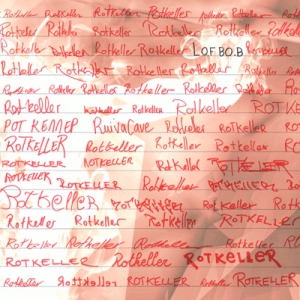 Rotkeller Rotkeller Rotkeller Rotkeller Rotkeller Rotkeller
Rotkeller Rotkeller Rotkeller Rotkeller Rotkeller
Rotkeller Rotkeller Rotkeller Rotkeller LOFBO.B
Rotkeller Rotkeller Rotkeller Rotkeller
Rotkeller Rotkeller Rotkeller Rotkeller Rotkeller
Rotkeller Rotkeller Rotkeller ROTK
РОТ КЕЛЛЕР RuivaCave Rotkeller Rotkeller ROTKELLER
ROTKELLER Rotkeller Rotkeller Rotkeller
ROTKELLER ROTKELLER Rotkeller ROTKELLER
ROTKELLER ROTKELLER Rotkeller ROTKELLER
Rotkeller Rotkeller Rotkeller
Rotkeller Rotkeller Rotkeller ROTKELLER
Rotkeller Rotkeller Rotkeller Rotkeller RO
ROTKELLER Rotkeller ROTKELLER
Rotkeller Rotkeller Rotkeller Rotkeller ROTKELLER